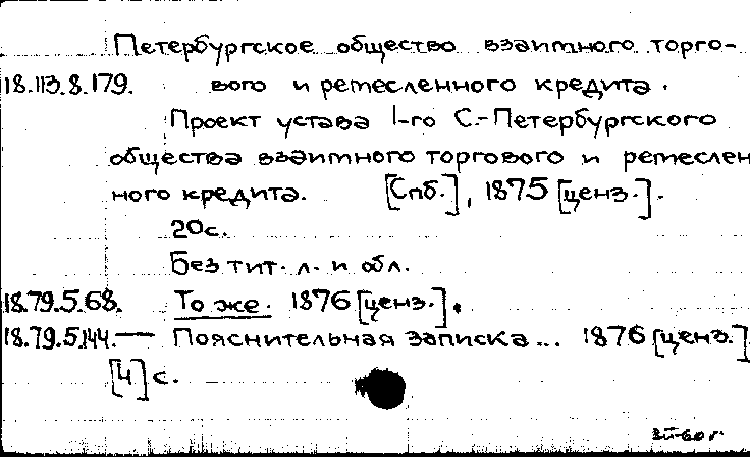 Петербургское общество взаимного торго-
18.113.8.179. вого и ремесленного кредита.
Проект устава 1-го С.-Петербургского
общества взаимного торгового и ремеслен
ного кредита. [Спб.], 1875 [ценз.].
20с.
Без тит. л. и обл.
18.79.5.68. То же. 1876 [ценз.].
18.79.5.144. — Пояснительная записка... 1876 [ценз.]
[4] с.